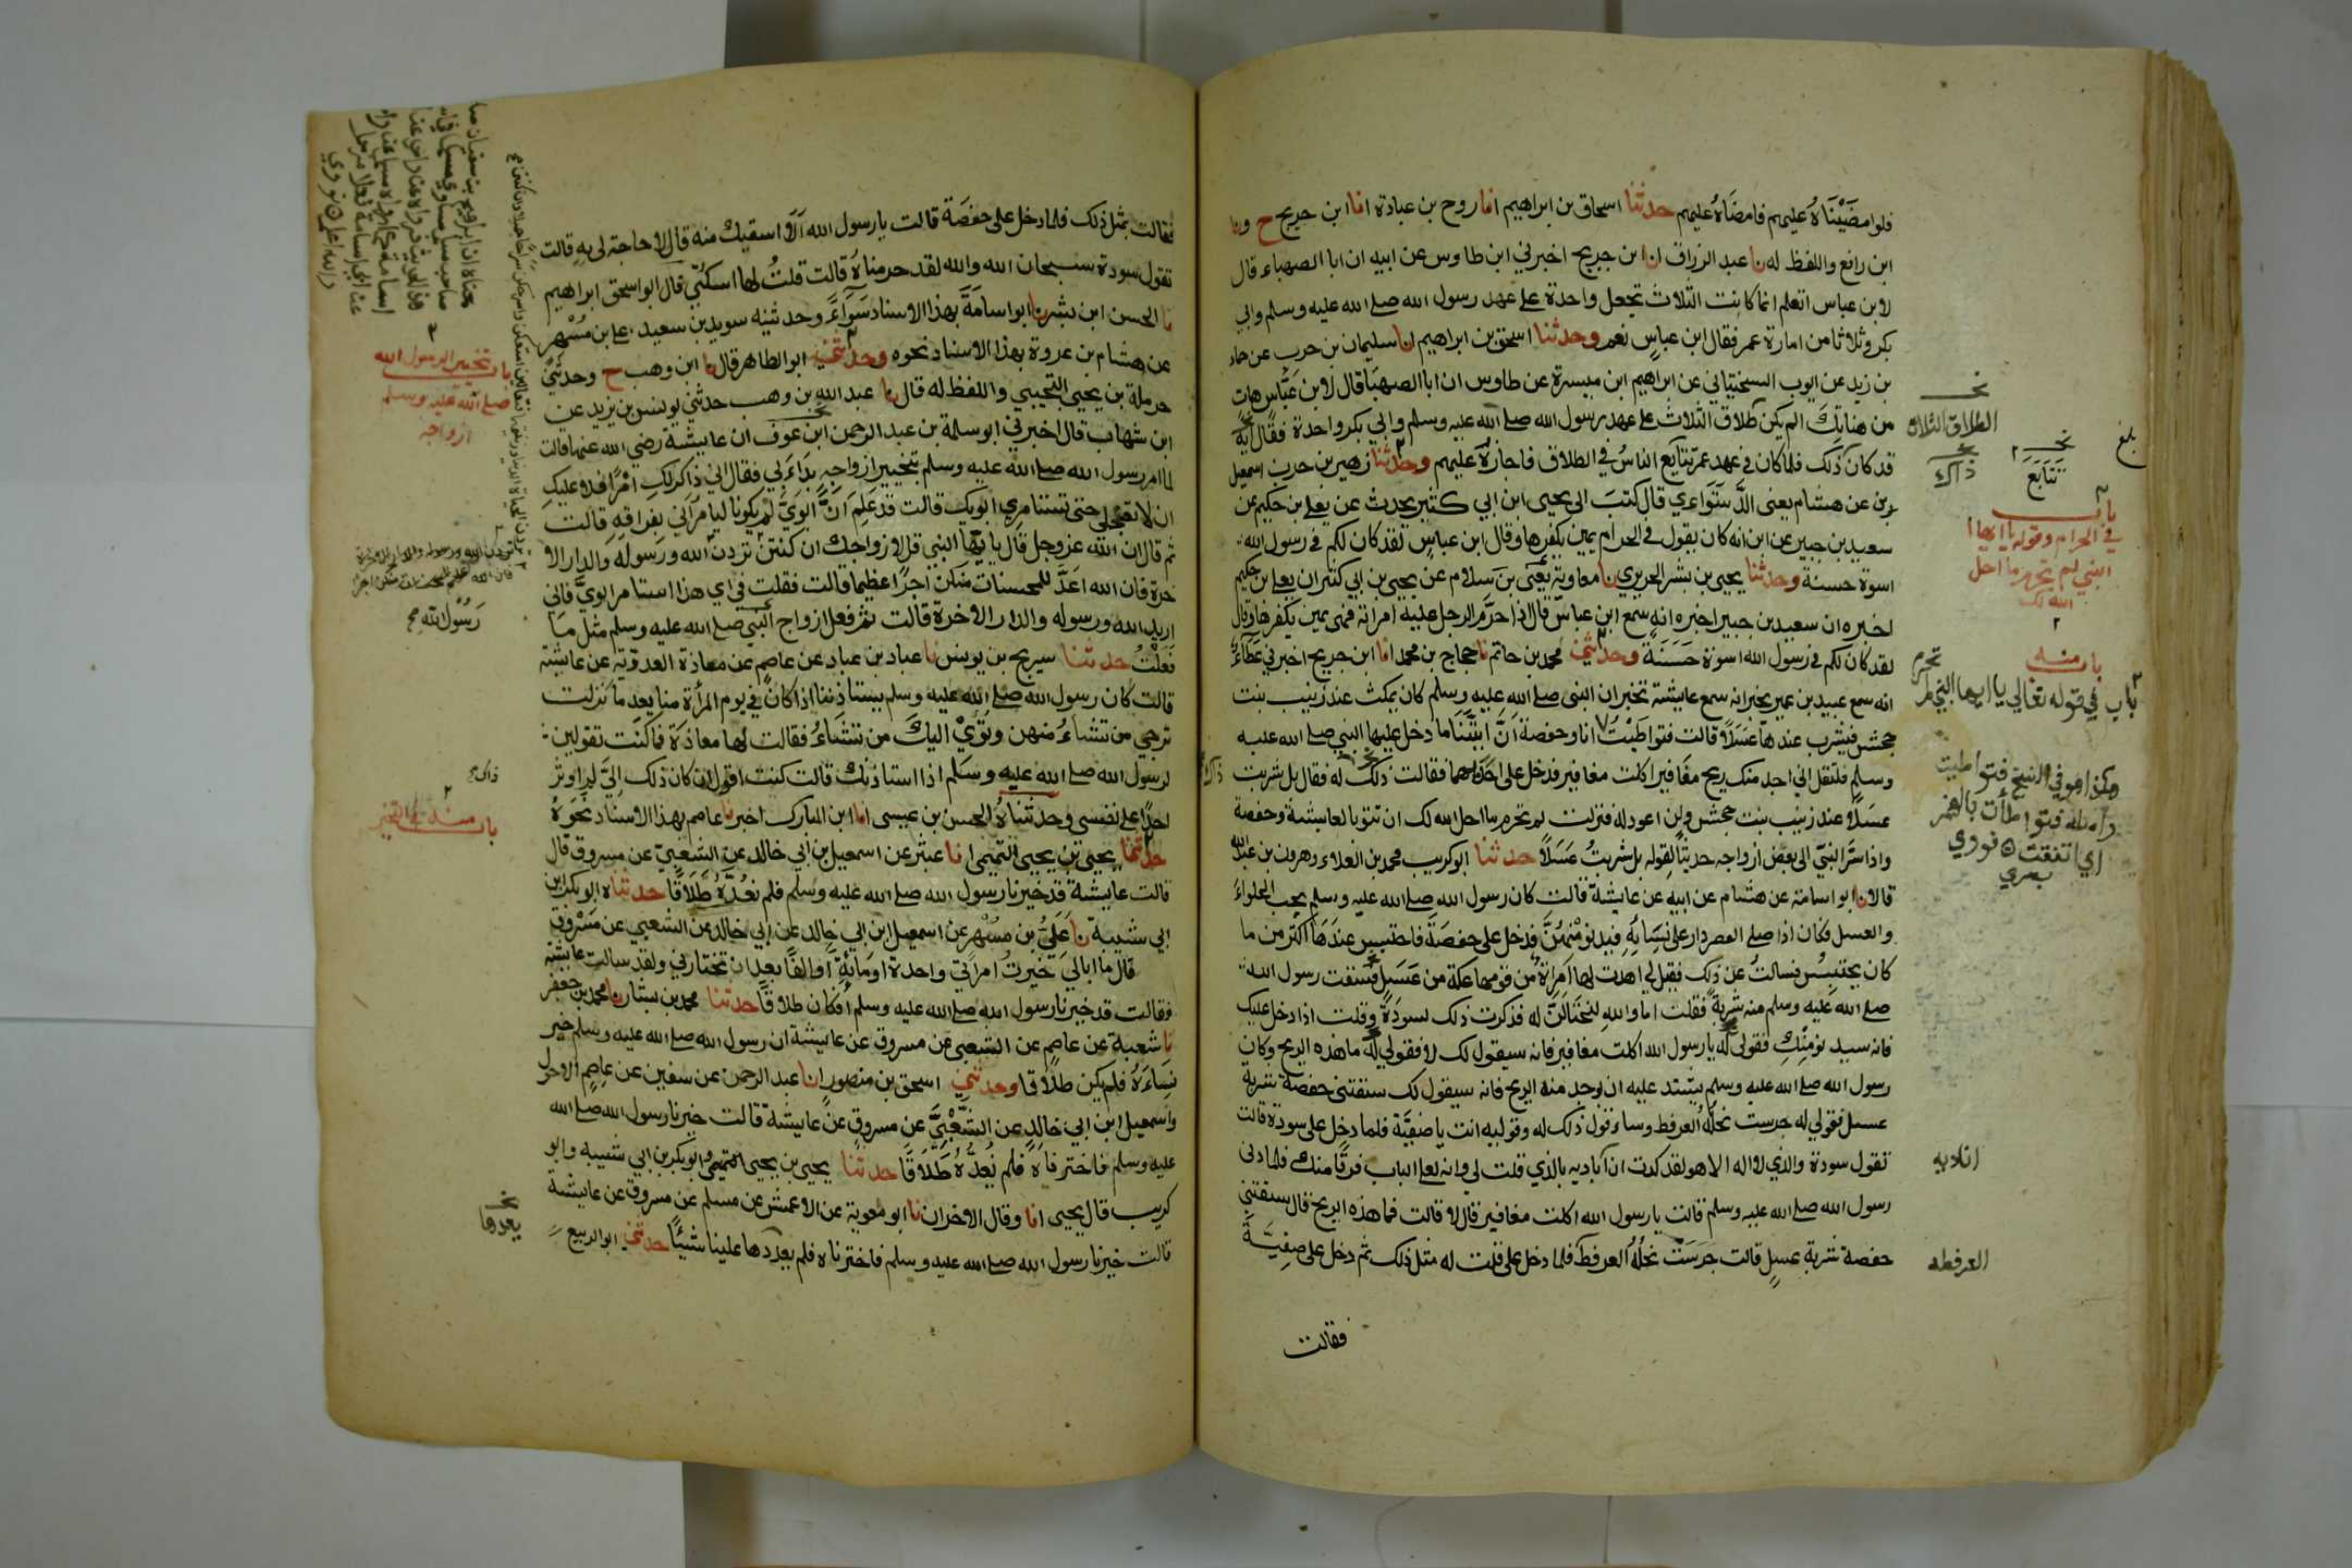 فلوا مضَيْنَاهُ عليهم فامضَاهُ عليهم حدثنا اسحاق بن ابراهيم انا روح بن عبادة انا ابن جريج ح ونا
ابن رافع واللفظ له نا عبد الرزاق انا ابن جريج اخبرني ابن طاوس عن ابيه ان ابا الصهباء قال
لابن عباس اتعلم انما كانت الثلاث تجعل واحدة على عهد رسول الله صلى الله عليه وسلم وابي
بكر وثلاثا من امارة عمر فقال ابن عباسٍ نعم وحدثنا اسحق بن ابراهيم انا سليمان بن حرب عن حماد
بن زيد عن ايوب السختياني عن ابراهيم ابن ميسرة عن طاوس ان ابا الصهبا قال لابن عباس هات
من هناتك الم يكن طلاق الثلاث على عهد رسول الله صلى الله عليه وسلم وابي بكر واحدة فقال
قد كان ذلك فلما كان في عهد عمر تتايع الناسُ في الطلاق فاجازهُ عليهم وحدثنا زهير بن حرب اسمعيل
بن عن هشام يعني الدَّستَواءي قال كتبَ الى يحيى ابن ابي كثير يحدث عن يعلى بن حكيم عن
سعيد بن جبير عن ابن انه كان يقول في الحرام يمين يكفرها وقال ابن عباسٍ لقد كان لكم في رسول الله
اسوة حسنة وحدثنا يحيى بن بشر الحريري نا معاوية يعني بن سلام عن يحيى بن ابي كثير ان يعلى بن حكيم
اخبره ان سعيد بن جبير اخبره انه سمع ابن عباس قال اذا حرَّم الرجل عليه امراته فهي يمين يكفرها وقال
لقد كان لكم في رسول الله اسوة حَسَنَة وحدثني محمد بن حاتم نا حجاج بن محمد انا ابن جريج اخبرني عَطَاءٌ
انه سمع عبيد بن عمير يخبر انه سمع عايشة تخبر ان النبي صلى الله عليه وسلم كان يمكث عند زينب بنت
جحش فيشرب عندها عَسَلًا قالت فتواطَيْتُ انا وحفصة اَنَّ ايتَنا ما دخل عليها النبي صلى الله عليه
وسلم فلتقل اني اجد منك ريح مغافير اكلت مغافير فدخل على احدَاهما فقالت ذلك له فقال بل شربت
عسَلًا عند زينب بنت جحش ولن اعود له فنزلت لم تحرم ما احل الله لك ان تتوبا لعايشة وحفصة
واذا سَرَّ النبيّ الى بعض ازواجه حديثًا لقوله بل شربتُ عَسَلًا حدثنا ابو كريب محمد بن العلاء وهرون بن عبدالله
قالا نا ابو اسامة عن هشام عن ابيه عن عايشة قالت كان رسول الله صلى الله عليه وسلم يحب الحلواءَ
والعسل فكان اذا صلى العصر دار على نسَايِه فيدنو مِنْهُنَّ فدخل على حفصَة فاحتبس عندهَا اكثر من ما
كان يحتبِسُ فسالتُ عن ذلك فقيل لي اهدت لها امراةٌ من قومها عكة من عَسَلٍ فسقت رسول الله
صلى الله عليه وسلم منه شربة فقلت اما والله لنحتَالَنَّ له فذكرت ذلك لسودَة وقلت اذا دخل عليك
فانه سيد نو مِنْكِ فقولي له يا رسول الله اكلت مغافير فانه سيقول لك لا فقولي له ما هذه الريح وكان
رسول الله صلى الله عليه وسلم يشتد عليه ان يوجد منه الريح فانه سيقول لك سقتني حفصة شربة
عسل فقولي له جرست نحلهُ العرفط وساءقول ذلك له وقوليه انت يا صفيَّة فلما دخل على سودة قالت
تقول سودة والذي لا اله الا هو لقد كدت ان اباديه بالذي قلت لي وانه لعلى الباب فرقًا منك فلما دنى
رسول الله صلى الله عليه وسلم قالت يا رسول الله اكلت مغافير قال لا قالت فما هذه الريح قال سقتني
حفصة شربة عسلٍ قالت جَرَسَت نحلُهُ العرفط فلما دخل علي قلت له مثل ذلك ثم دخل على صفيَّة
فقالت
بلغ
نخـ
الطلاق الثلاث
ذاك
نخـ
تَتَابَعَ
باب
في الحرام وقوله يا ايها
النبي لم تحرم ما احل
الله لك
باب منه
تحرم
باب في قوله تعالى يا ايها النبي لم
هكذا هو في النسخ فتواطيت
واصله فتواطأت بالهمز
اي اتفقت نووي
اناديه
العرفطه
فقالت بمثل ذلك فلما دخل على حفصَة قالت يا رسول الله اَلَا اسقيك منه قال لا حاجة لي به قالت
تقول سودة سبحان الله والله لقد حرمناهُ قالت قلتُ لها اسكتي قال ابو اسحق ابراهيم
نا الحسن ابن بشر نا ابو اسامَةَ بهذا الاسناد سَوَاءً وحدثنيه سويد بن سعيد على بن مُسْهر
عن هشام بن عروة بهذا الاسناد نحوه وحدثني ابو الطاهر قال نا ابن وهب ح وحدثني
حرملة بن يحيى التجيبي واللفظ له قال نا عبد الله بن وهب حدثني يونس بن يزيد عن
ابن شهاب قال اخبرني ابو سلمة بن عبد الرحمن ابن عوف ان عايشة رضي الله عنها قالت
لما امر رسول الله صلى الله عليه وسلم بتخيير ازواجِهِ بَدَاءَ بي فقال اني ذاكر لكِ امْرًا فلا عليك
ان لا تعجلي حتى تستامري ابويك قالت قد عَلِمَ اَنَّ ابوَيَّ لم يكونا ليامراني بفراقه قالت
ثم قال ان الله عز وجل قال يا ايها النبي قل لازواجك ان كنتن تردن الله ورسوله والدار الا
خرة فان الله اعَدَّ للمحسنات منكن اجرًا عظيما قالت فقلت في اي هذا استامر ابويَّ فاني
اريد الله ورسوله والدار الاخرة قالت ثم فعل ازواج النبي صلى الله عليه وسلم مثل ما
فَعَلْتُ حدثنا سريج بن يونس نا عباد بن عباد عن عاصم عن معاذة العدوّية عن عايشة
قالت كان رسول الله صلى الله عليه وسلم يستاذننا اذا كان في يوم المرأة منا بعد ما نزلت
ترجي من تشاءُ منهن وتؤيْ اليكَ من تشاءُ فقالت لها معاذَة فما كنت تقولين
لرسول الله صلى الله عليه وسلم اذا استاذنك قالت كنت اقول ان كان ذلك اليَّ لم اوثر
احدًا على نفسي وحدثناهُ الحسن بن عيسى انا ابن المبارك اخبرنا عاصم بهذا الاسناد نَحْوَهُ
حدثنا يحيى بن يحيى التميمي انا عبثر عن اسمعيل بن ابي خالد عن الشعبيّ عن مسروق قال
قالت عايشة قد خيرنا رسول الله صلى الله عليه وسلم فلم نعُدَّهُ طَلَاقًا حدثناه ابو بكر ابن
ابي شيبة نا عَليُّ بن مُسْهر عن اسمعيل ابن ابي خالد عن ابي خالد عن الشعبي عن مسْروق
قال ما ابالي خيرتُ امراتي واحدة او مايةً او الفًا بعد ان تختارني ولقد سالت عايشة
فقالت قد خيرنا رسول الله صلى الله عليه وسلم أفكان طلاقًا حدثنا محمد بن بشار نا محمد بن جعفر
نا شعبة عن عاصم عن الشعبي عن مسروق عن عايشة ان رسول الله صلى الله عليه وسلم خير
نِساءَهُ فلم يكن طلاقا وحدثني اسحق بن منصور انا عبد الرحمن عن سفين عن عاصم الاحول
واسمعيل ابن ابي خالد عن الشَّعْبِيَّ عن مسروق عن عايشة قالت خيرنا رسول الله صلى الله
عليه وسلم فاخترناهُ فلم نُعدَّهُ طَلَاقًا حدثنا يحيى بن يحيى التميمي وابو بكر بن ابي شيبه وابو
كريب قال يحيى انا وقال الاخران نا ابو معوية عن الاعمش عن مسلم عن مسروق عن عايشة
قالت خيرنا رسول الله صلى الله عليه وسلم فاخترناه فلم يعددها علينا شيئًا حدثني ابو الربيع
باب تخيير الرسول الله
صلى الله عليه وسلم
ازواجه
رَسُولَ الله صح
ذاك
باب منه في التخيير
نخـ
يعدها